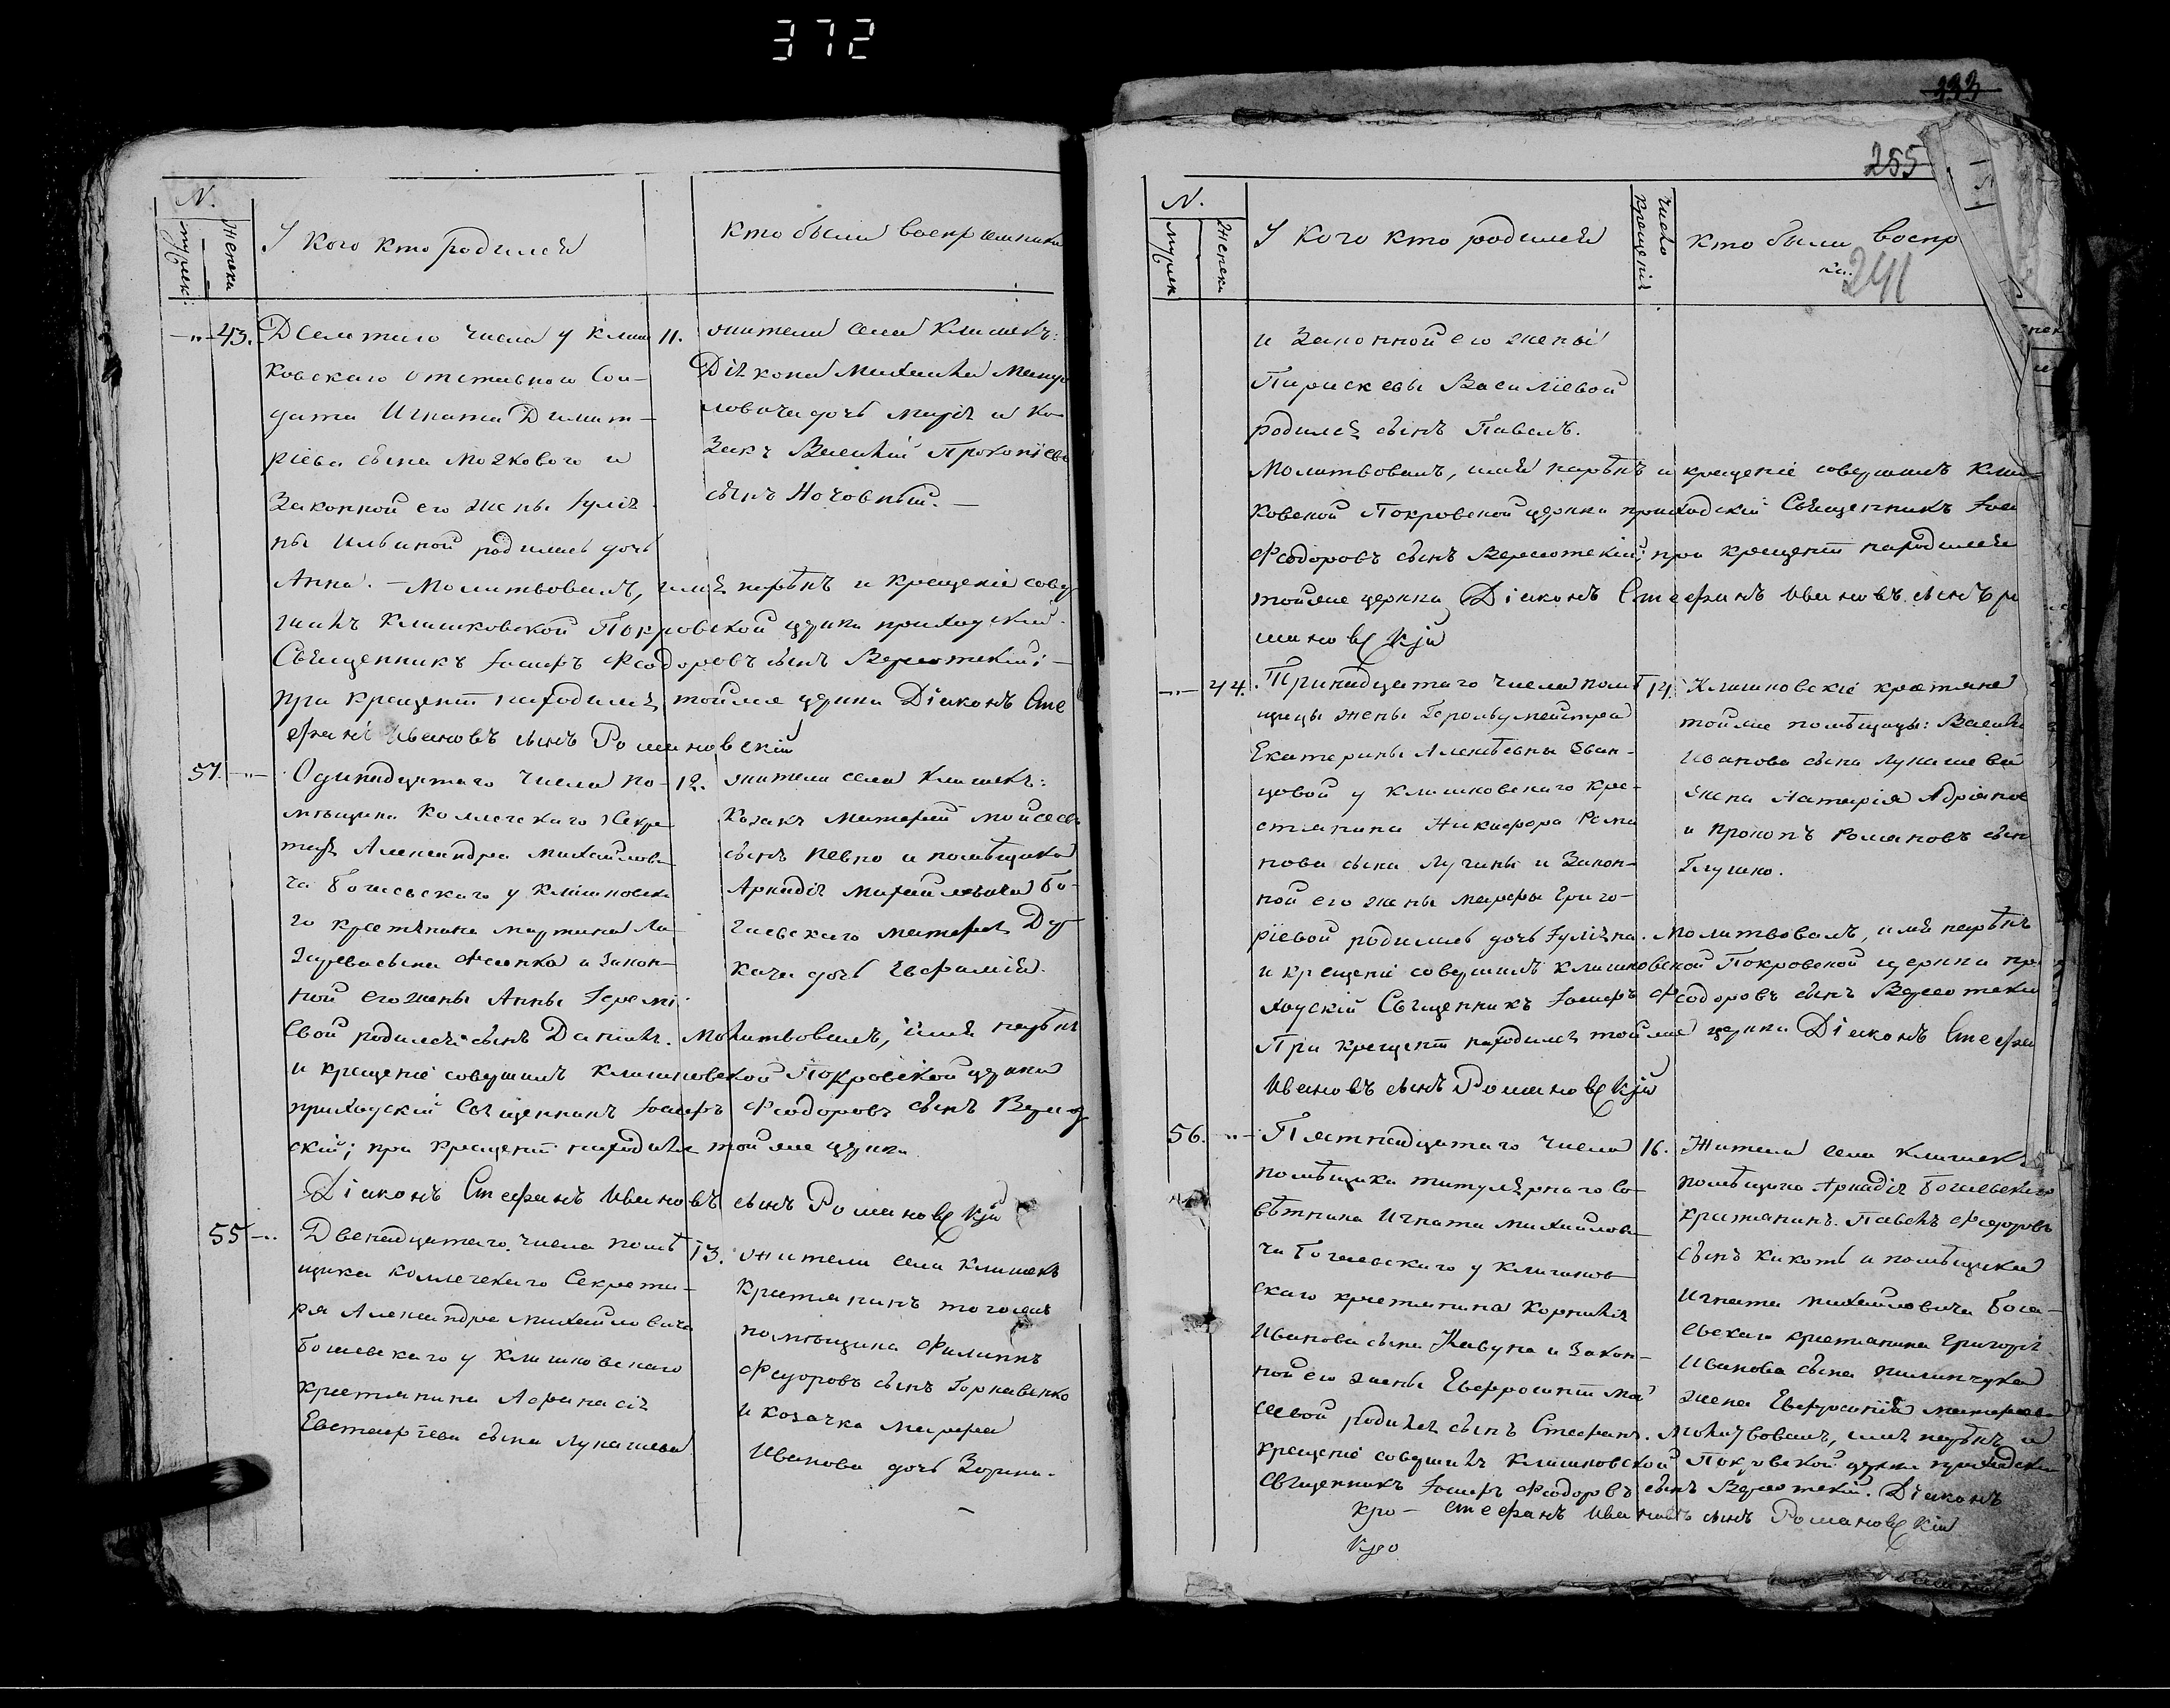 372
N.
мужек:
Женски
У кого кто родился
кто были восприемники
43. Десятого числа у Клиш
ковскаго отставного Сол-
дата Игната Димит-
ріева сына Мозкового и
Законной его жены Іулія
ны Ильиной родилась дочь
Анна. – Молитвовалъ, имя нарѣкъ и крещеніе совер
шилъ Клишковской Покровской церкви приходскій
Священникъ Іосифъ Феодоровъ сынъ
при крещеніи находился тойже церкви Діаконъ Сте
фанъ Ивановъ сынъ Романовскій
11. жители села Клишекъ:
Діакона Михаила
дочь Марія и Ко-
закъ Василій Прокопіевъ
сынъ Ночовный. –
Одинадцатаго числа по-
мѣщика Коллегскаго Секре
таря Александра Михайлови
ча Богаевскаго у Клишковска
го крестянина Мартина Ла
зарева сына Фесенка и Закон-
ной его жены Анны Іеремі
евой родился сынъ Даніилъ. Молитвовалъ, имя нарѣкъ
и крещеніе совершилъ Клишковской Покровской церкви
приходскій Священникъ Іосифъ Феодоровъ сынъ
скій; при крещеніи находился тойже церкви
Діаконъ Стефанъ Ивановъ сынъ Романовскій
12. жители села Клишекъ:
Козакъ Матфей Мойсеевъ
сынъ Певно и помѣщика
Аркадія Михайловича Бо-
гаевскаго Матфея Ду-
кача дочь Евфимія.
55 Двенадцатаго числа помѣ
щика Коллегскаго Секрета-
ря Александра Михайловича
Богаевскаго у Клишковскаго
крестянина Афанасія
Евстафіева сына Лукашева
13. жители села Клишекъ
Крестянинъ тогоже
помѣщика Филиппъ
Федоровъ сынъ Горкавенко
и козачка Марфа
Иванова дочь Зорина.
255
241
N.
Мужек
Женски
У кого кто родился
Число крещенія
кто были воспр
и Законной его жены
Параскевы Василіевой
родился сынъ Павелъ.
Молитвовалъ, имя нарѣкъ и крещеніе совершилъ Клиш
ковской Покровской церкви приходскій Священникъ Іоси
Феодоровъ сынъ при крещеніи находился
тойже церкви Діаконъ Стефанъ Ивановъ сынъ Ро
мановскій
44. Тринадцатаго числа помѣ
щицы жены
Екатерины Алексѣевны Иван-
цовой у Клишковскаго кре-
стянина Никифора Рома
нова сына Лучины и Закон-
ной его жены Марфы Григо-
ріевой родилась дочь Іуліяна. Молитвовалъ, имя нарѣкъ
и крещеніе совершилъ Клишковской Покровской церкви при
ходскій Священникъ Іосифъ Феодоровъ сынъ
При крещеніи находился тойже церкви Діаконъ Стефан
Ивановъ сынъ Романовскій
14. Клишковскіе крестяне
тойже помѣщицы: Василія
Иванова сына Лукашева
жена Натарія Адріанов
и Прокопъ Романовъ сын
Глушко.
56. Пятнадцатаго числа
помѣщика титулярнаго Со-
вѣтника Игната Михайлови
ча Богаевскаго у Клишков-
скаго крестянина Корнилія
Иванова сына Кавуна и Закон-
ной его жены Евфросиніи
родился сынъ Стефанъ. Молитвовалъ, имя нарѣкъ и
крещеніе совершилъ Клишковской Покровской церкви приходскій
Священникъ Іосифъ Феодоровъ сынъ Діаконъ
Стефанъ Ивановъ сынъ Романовскій
16. Жители села Клишекъ
помѣщика Аркадія Богаевскаго
крестянинъ Павелъ Федоровъ
сынъ Кикоть и помѣщика
Игната Михайловича Бога-
евскаго крестянина Григорія
Иванова сына Пилипчука
жена Евфросинія